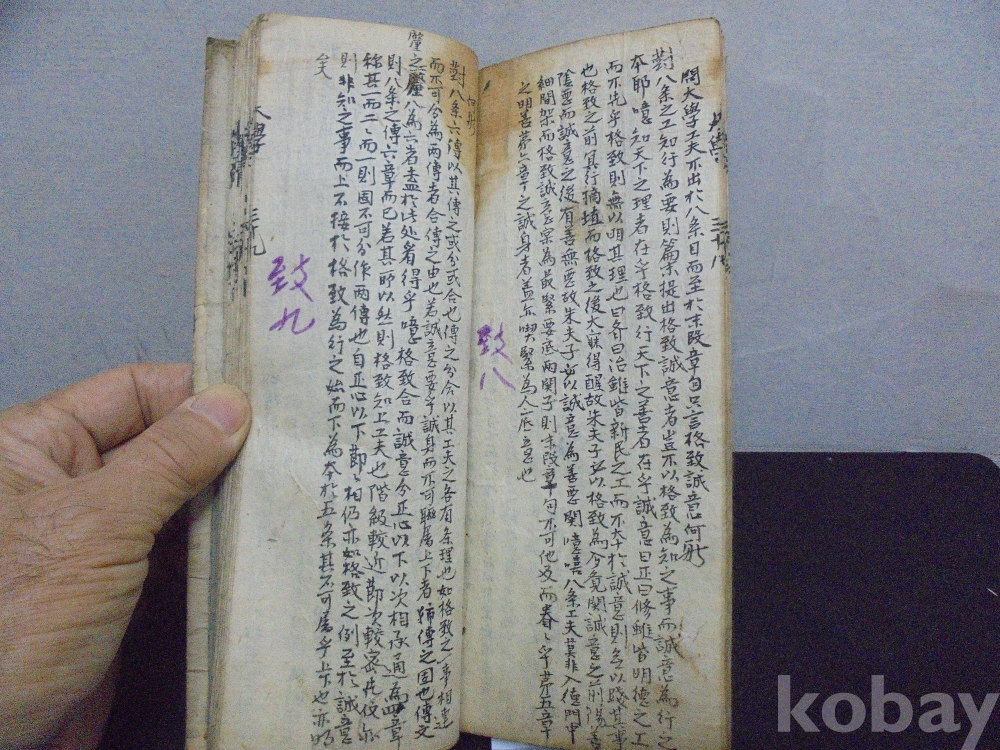 問大學工夫不出於八条目而至於末段章句只言格致誠意何歟
對八条之工知行為要則篇末提出格致誠意者豈不以格致為知之事而誠意為行之
本耶噫知天下之理者在乎格致行天下之善者在乎誠意曰正曰修雖皆明德之工
而不先乎格致則無以明其理也曰齊曰治雖皆新民之工而不本於誠意則無以踐其事
也格致之前冥行摘埴而格致之後大昧得醒故朱夫子必以格致為夢覺關誠意之前陽善
陰惡而誠意之後有善無惡故朱夫子必以誠意為善惡關噫嘻八条工夫莫非入德門中
細間架而格致誠意寔為最緊要底兩關子則末段章句不可他及而眷〻乎第五章
之明善第六章之誠身者盖亦喫緊為人底意也
致八
大學
三十八
對八条六傳以其傳之或分或合也傳之分合以其工夫之各有条理也如格致之一事相連
而不可分為兩傳者合傳之由也若誠意要乎誠身而不可聯屬上下者
則八条之傳六章而已若其所以然則格致知上工夫也階級較近節次較密
称其一而二二而一則固不可分作兩傳也自正心以下節〻相仍亦如格致之例至於誠意
則非知之事而上不接於格致為行之始而下為本於五条其不可屬乎上下也亦明
矣
致九
大學
三十九
kobay